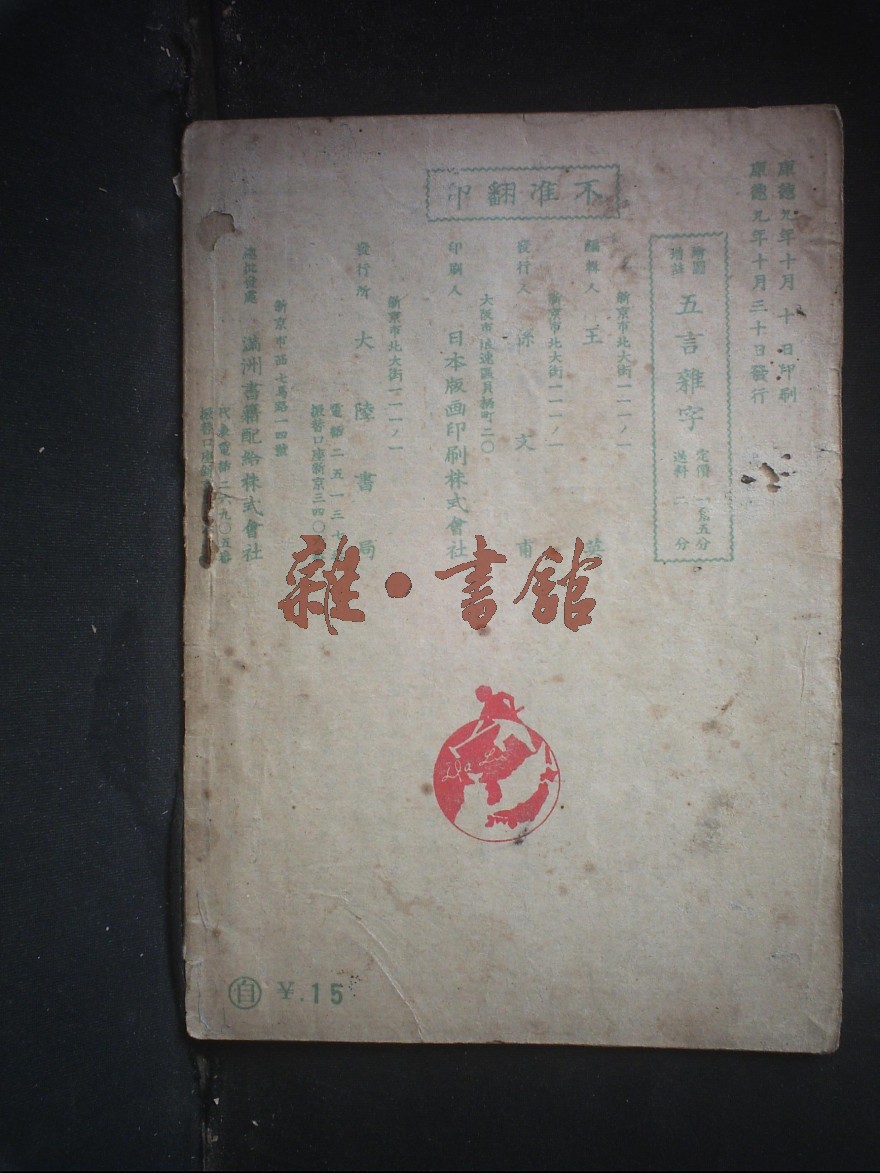 康德九年十月 十日印刷
康德九年十月三十日發行
不准翻印
繪圖增註 五言雜字 定價 一角五分 送料 二分
新京市北大街一一一ノ一
編輯人 王 英
新京市北大街一一一ノ一
發行人 文甫
大阪市浪速區貝柄町二〇
印刷人 日本版画印刷株式會社
新京市北大街一一一ノ一
發行所 大陸書局
電話二五一三
振替口座新京三四〇
新京市西七馬路一四號
滿洲書籍配給株式會社
代表電話二
振替口座新
雜·書館
自 ¥.15